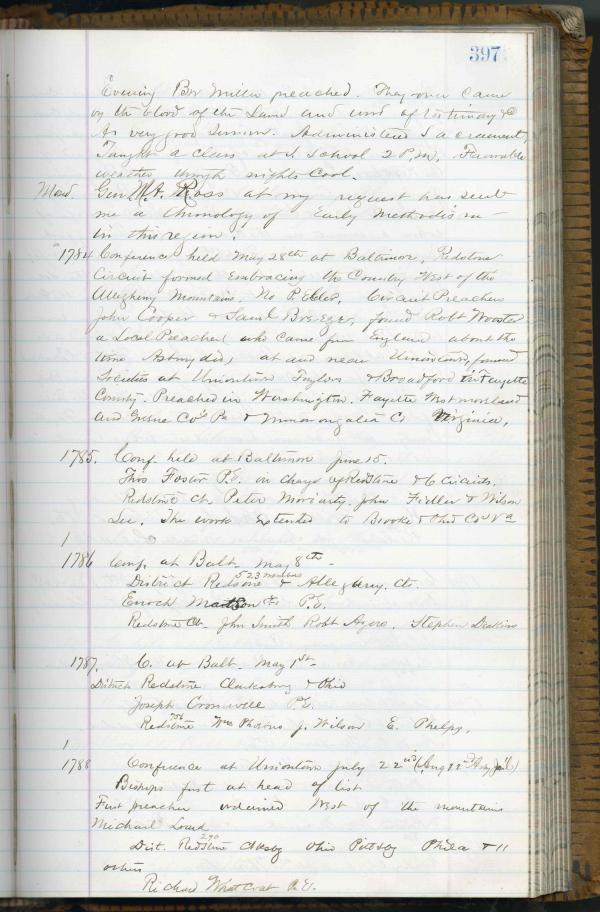 397
Evening Bro Miller preached. They over came
by the blood of the Lamb and word of testimony &c
A very good Session. Administered Sacrament,
Taught a class at S. School 2 P.M. Favorable
weather though nights Cool.
Mond. Genl M.A. Ross at my request has sent
me a Chronology of Early Methodism
in this region.
1784 Conference held May 28th at Baltimore, Redstone
Circuit formed Embracing the Country West of the
Allegheny Mountains. No P. Elder, Circuit Preachers
John Cooper & Saml Breeze, found Robt Wooster
a Local Preacher who came from England about the
time Asbury did, at and near Uniontown, formed
Societies at Uniontown Taylors & Bradford in Fayette
County. Preached in Washington, Fayette Westmoreland
and Greene Co's Pa & Monongalia Co Virginia.
1785. Conf. held at Baltimore June 15.
Thos Foster P.E. in charge of Redstone & 6 Circuits.
Redstone Ct. Peter Moriarty, John Fidler & Wilson
Lee. The work extended to Brooke & Ohio Co's Va
1
1786 Conf. at Balt. May 8th
523 members
District Redstone & Allegheny. Ct.
Enoch Matson P.E.
Redstone Ct. John Smith Robt Ayers. Stephen Deakins
1787. C. at Balt. May 1st
District Redstone Clarksburg & Ohio
Joseph Cromwell P.E.
756
Redstone Wm Phoebus J. Wilson E. Phelps,
1
1788 Conference at Uniontown July 22nd
Bishops first at head of list
First preacher ordained West of the mountains
Michael Loard
290
Dist. Redstone Clksbg Ohio Pittsbg Phila & 11
others
Richard Whatcoat P.E.